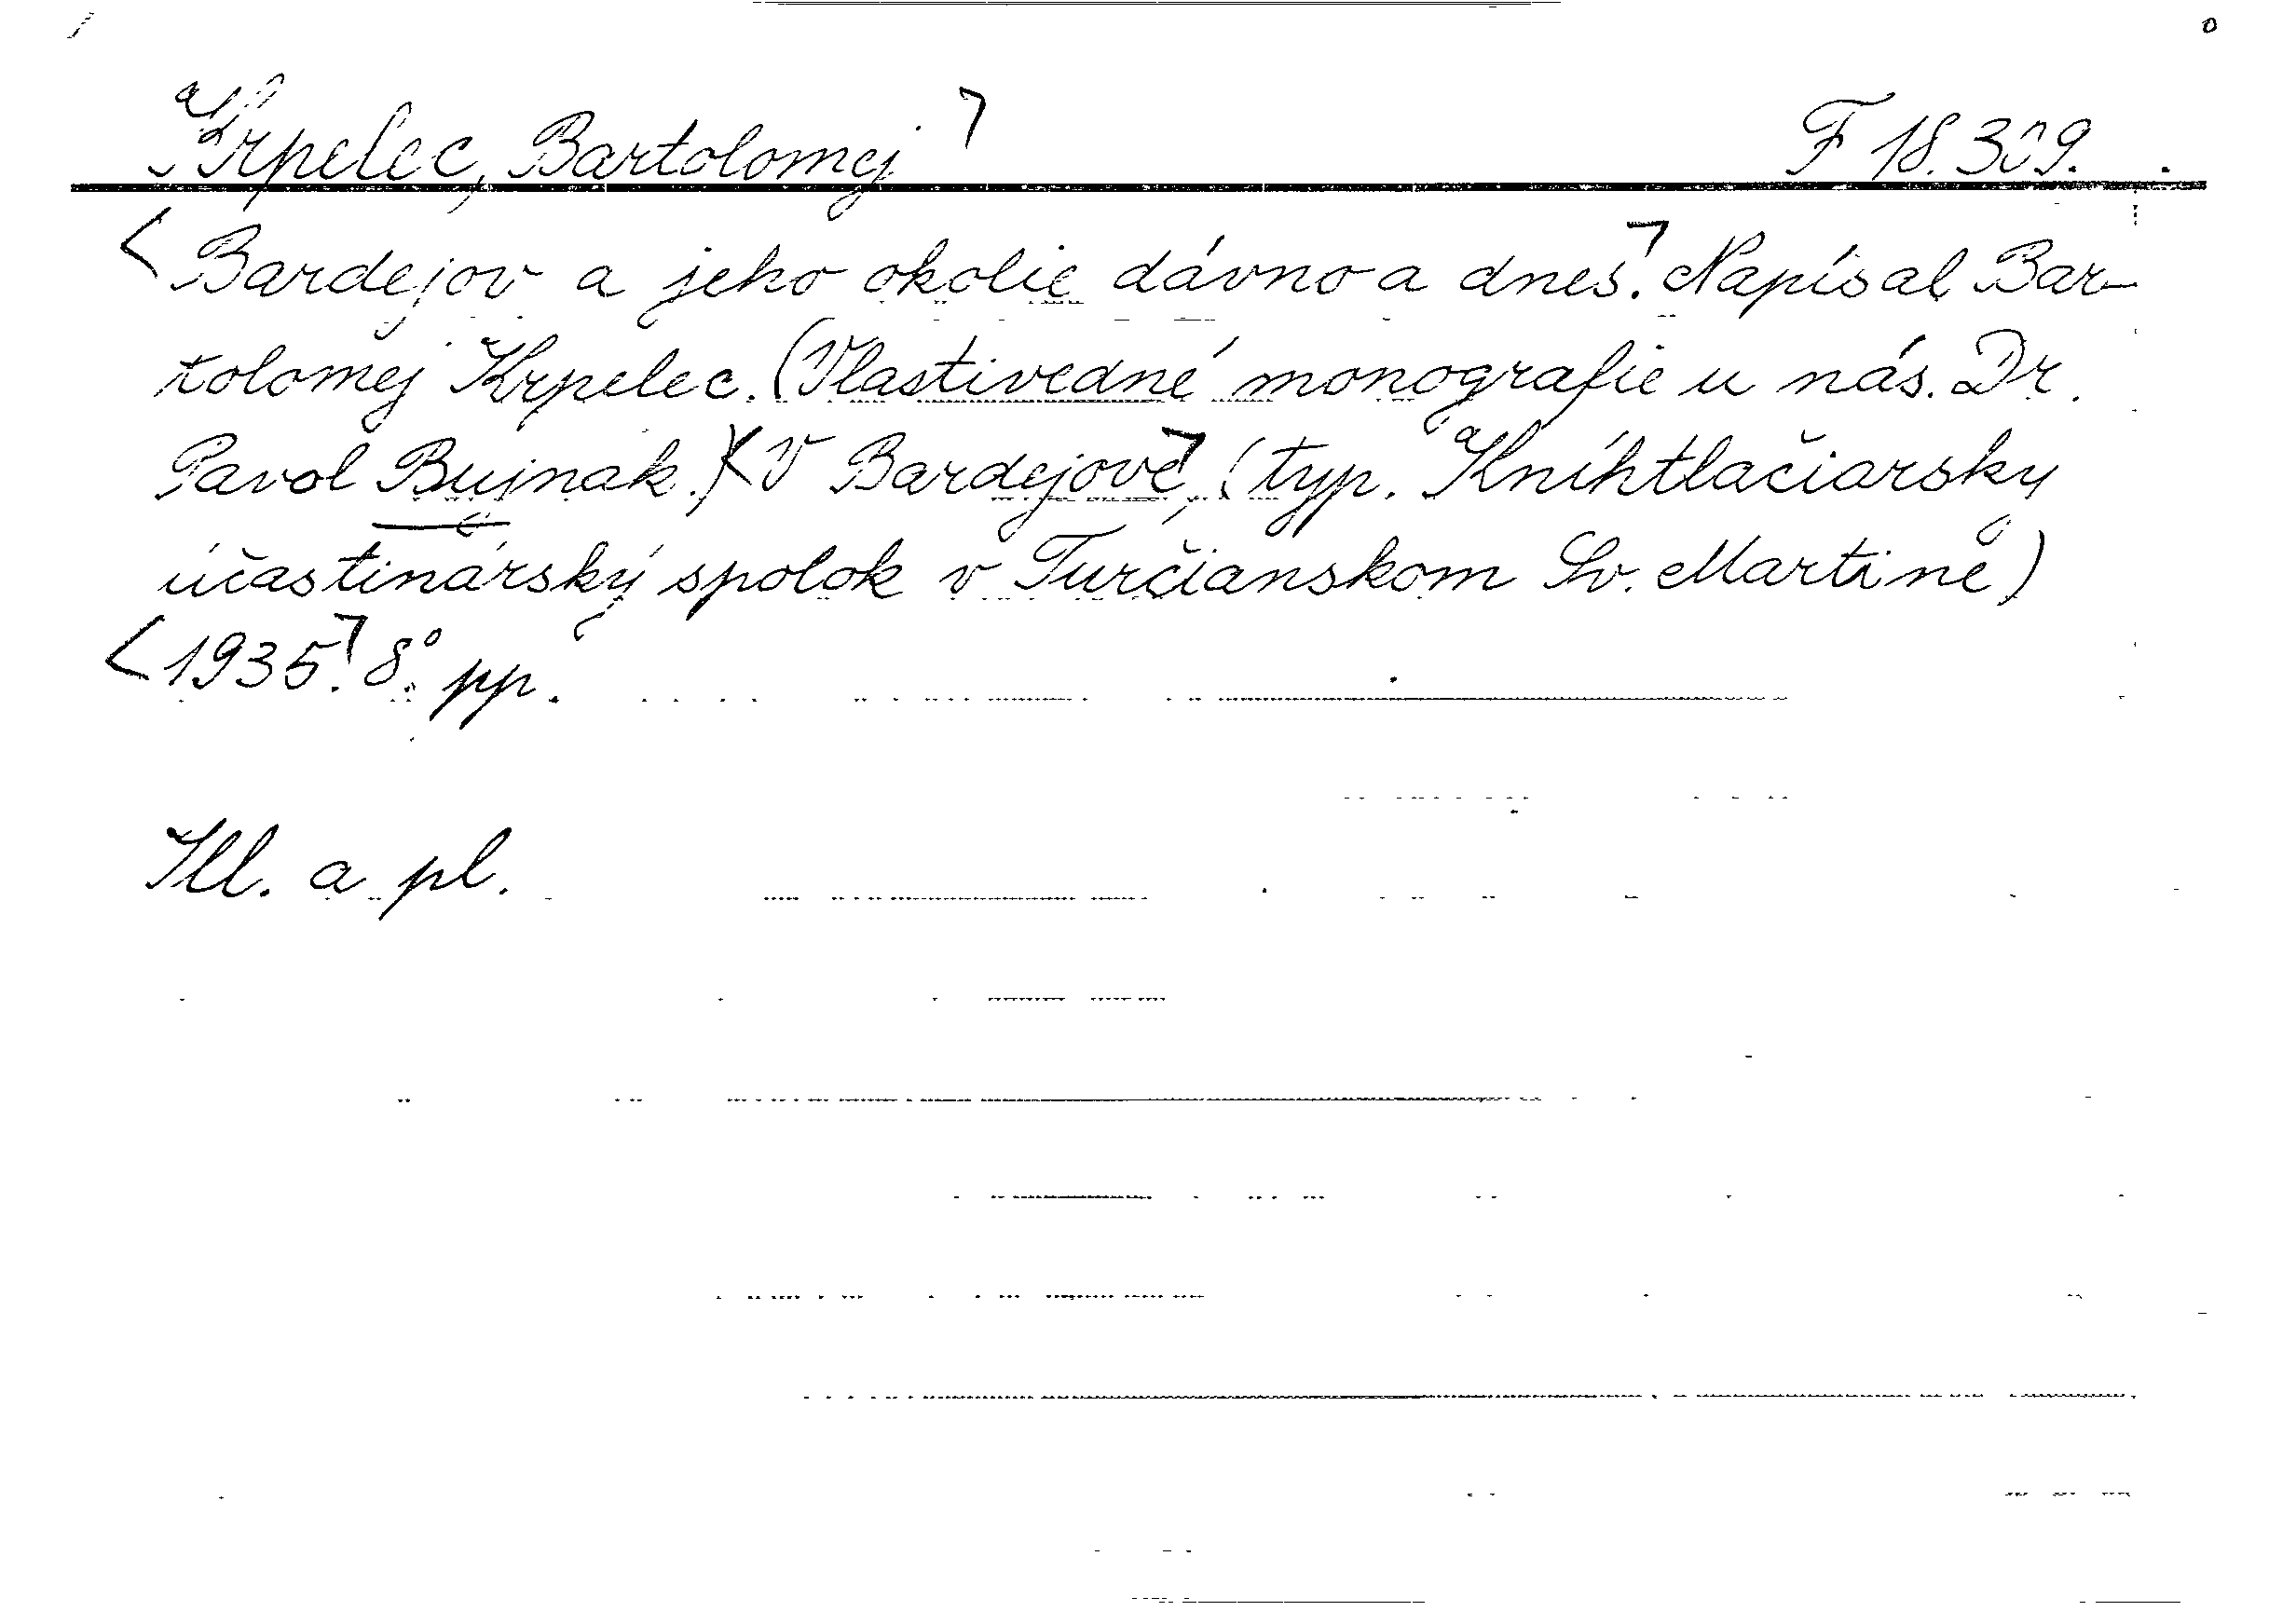 Krpelec, Bartolomej F 18.309.
Bardejov a jeho okolie dávno a dnes. Napísal Bar-
tolomej Krpelec. (Vlastivedné monografie u nás. Dr.
Pavol Bujnak.) V Bardejove, (typ. Kníhtlačiarsky
účastinársky spolok v Turčianskom Sv. Martine)
1935. 8° pp.
Ill. a pl.